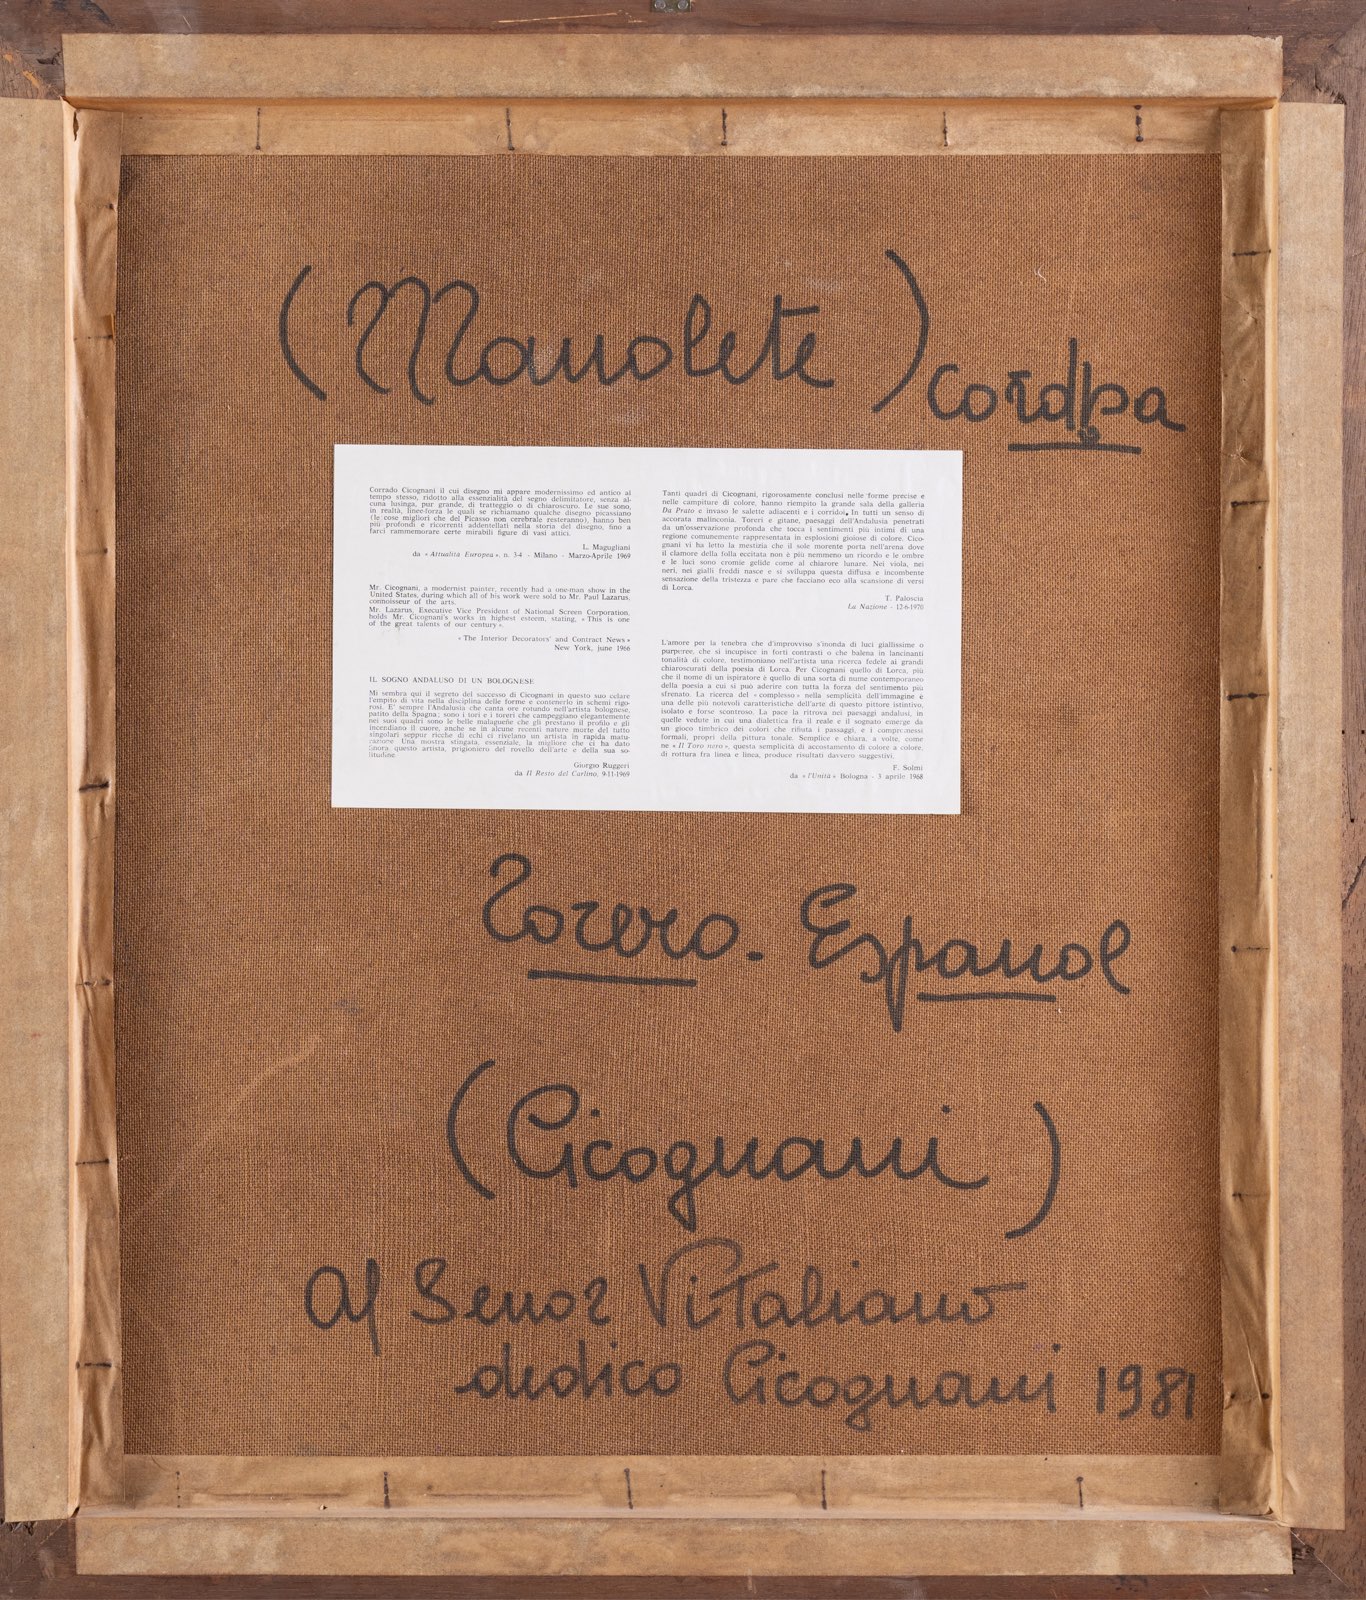 (Manolete) cordba
Corrado Cicognani il cui disegno mi appare modernissimo ed antico al
tempo stesso, ridotto alla essenzialità del segno delimitatore, senza al-
cuna lusinga, pur grande, di tratteggio o di chiaroscuro. Le sue sono,
in realtà, linee-forza le quali se richiamano qualche disegno picassiano
(le cose migliori che del Picasso non cerebrale resteranno), hanno ben
più profondi e ricorrenti addentellati nella storia del disegno, fino a
farci rammemorare certe mirabili figure di vasi attici.
L. Magugliani
da «Attualità Europea», n. 3-4 - Milano - Marzo-Aprile 1969
Mr. Cicognani, a modernist painter, recently had a one-man show in the
United States, during which all of his work were sold to Mr. Paul Lazarus,
connoisseur of the arts.
Mr. Lazarus, Executive Vice President of National Screen Corporation,
holds Mr. Cicognani's works in highest esteem, stating, «This is one
of the great talents of our century».
«The Interior Decorators' and Contract News»
New York, june 1966
IL SOGNO ANDALUSO DI UN BOLOGNESE
Mi sembra qui il segreto del successo di Cicognani in questo suo celare
l'empito di vita nella disciplina delle forme e contenerlo in schemi rigo-
rosi. E' sempre l'Andalusia che canta ore rotando nell'artista bolognese,
patito della Spagna; sono i tori e i toreri che campeggiano elegantemente
nei suoi quadri sono le belle malagueñe che gli prestano il profilo e gli
incendiano il cuore, anche se in alcune recenti nature morte del tutto
singolari seppur ricche di echi ci rivelano un artista in rapida matu-
razione. Una mostra stingata, essenziale, la migliore che ci ha dato
finora questo artista, prigioniero del rovello dell'arte e della sua so-
litudine.
Giorgio Ruggeri
da Il Resto del Carlino, 9-11-1969
Tanti quadri di Cicognani, rigorosamente conclusi nelle forme precise e
nelle campiture di colore, hanno riempito la grande sala della galleria
Da Prato e invaso le salette adiacenti e i corridoi. In tutti un senso di
accorata malinconia. Toreri e gitane, paesaggi dell'Andalusia penetrati
da un'osservazione profonda che tocca i sentimenti più intimi di una
regione comunemente rappresentata in esplosioni gioiose di colore. Cico-
gnani vi ha letto la mestizia che il sole morente porta nell'arena dove
il clamore della folla eccitata non è più nemmeno un ricordo e le ombre
e le luci sono cromie gelide come al chiarore lunare. Nei viola, nei
neri, nei gialli freddi nasce e si sviluppa questa diffusa e incombente
sensazione della tristezza e pare che facciano eco alla scansione di versi
di Lorca.
T. Paloscia
La Nazione - 12-6-1970
L'amore per la tenebra che d'improvviso s'inonda di luci giallissime o
purpuree, che si incupisce in forti contrasti o che balena in lancinanti
tonalità di colore, testimoniano nell'artista una ricerca fedele ai grandi
chiaroscurati della poesia di Lorca. Per Cicognani quello di Lorca, più
che il nome di un ispiratore è quello di una sorta di nume contemporaneo
della poesia a cui si può aderire con tutta la forza del sentimento più
sfrenato. La ricerca del «complesso» nella semplicità dell'immagine è
una delle più notevoli caratteristiche dell'arte di questo pittore istintivo,
isolato e forse scontroso. La pace la ritrova nei paesaggi andalusi, in
quelle vedute in cui una dialettica fra il reale e il sognato emerge da
un gioco timbrico dei colori che rifiuta i passaggi, e i compromessi
formali, propri della pittura tonale. Semplice e chiara, a volte, come
ne «Il Toro nero», questa semplicità di accostamento di colore a colore,
di rottura fra linea e linea, produce risultati davvero suggestivi.
F. Solmi
da «l'Unità» Bologna - 3 aprile 1968
Torero. Espanol
(Cicognani)
Al Senor Vitaliano
dedico Cicognani 1981